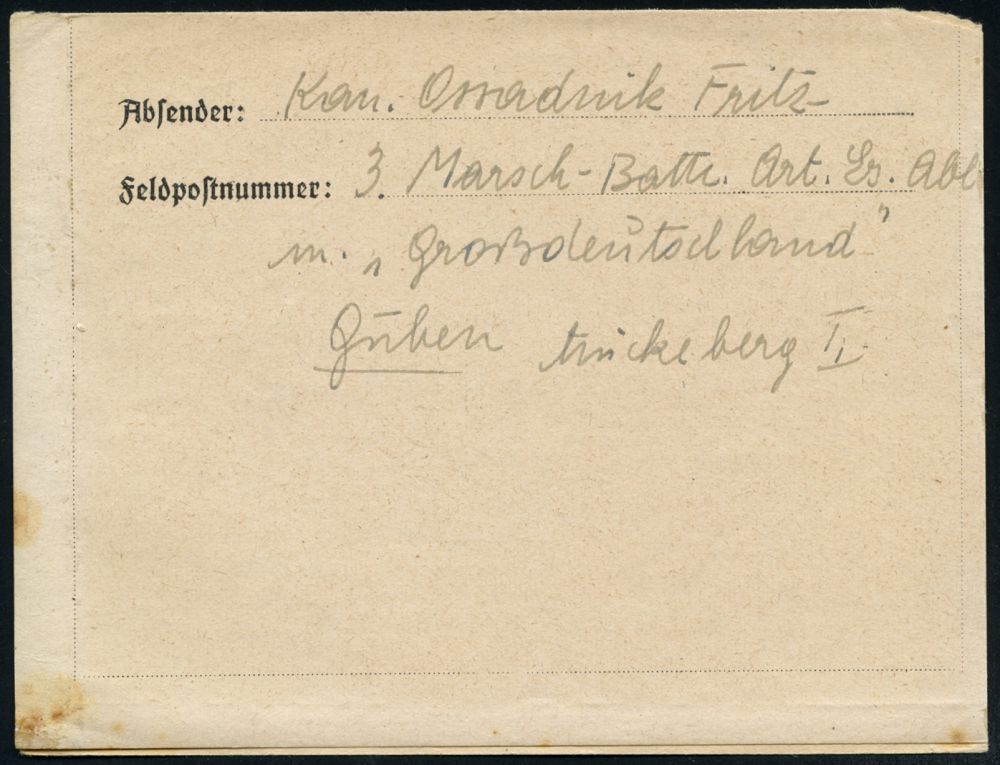 Absender: Kan. Ossadnik Fritz
Feldpostnummer: 3. Marsch-Battr. Art. Es. Abt.
m. „Großdeutschland”
Guben Mückeberg II